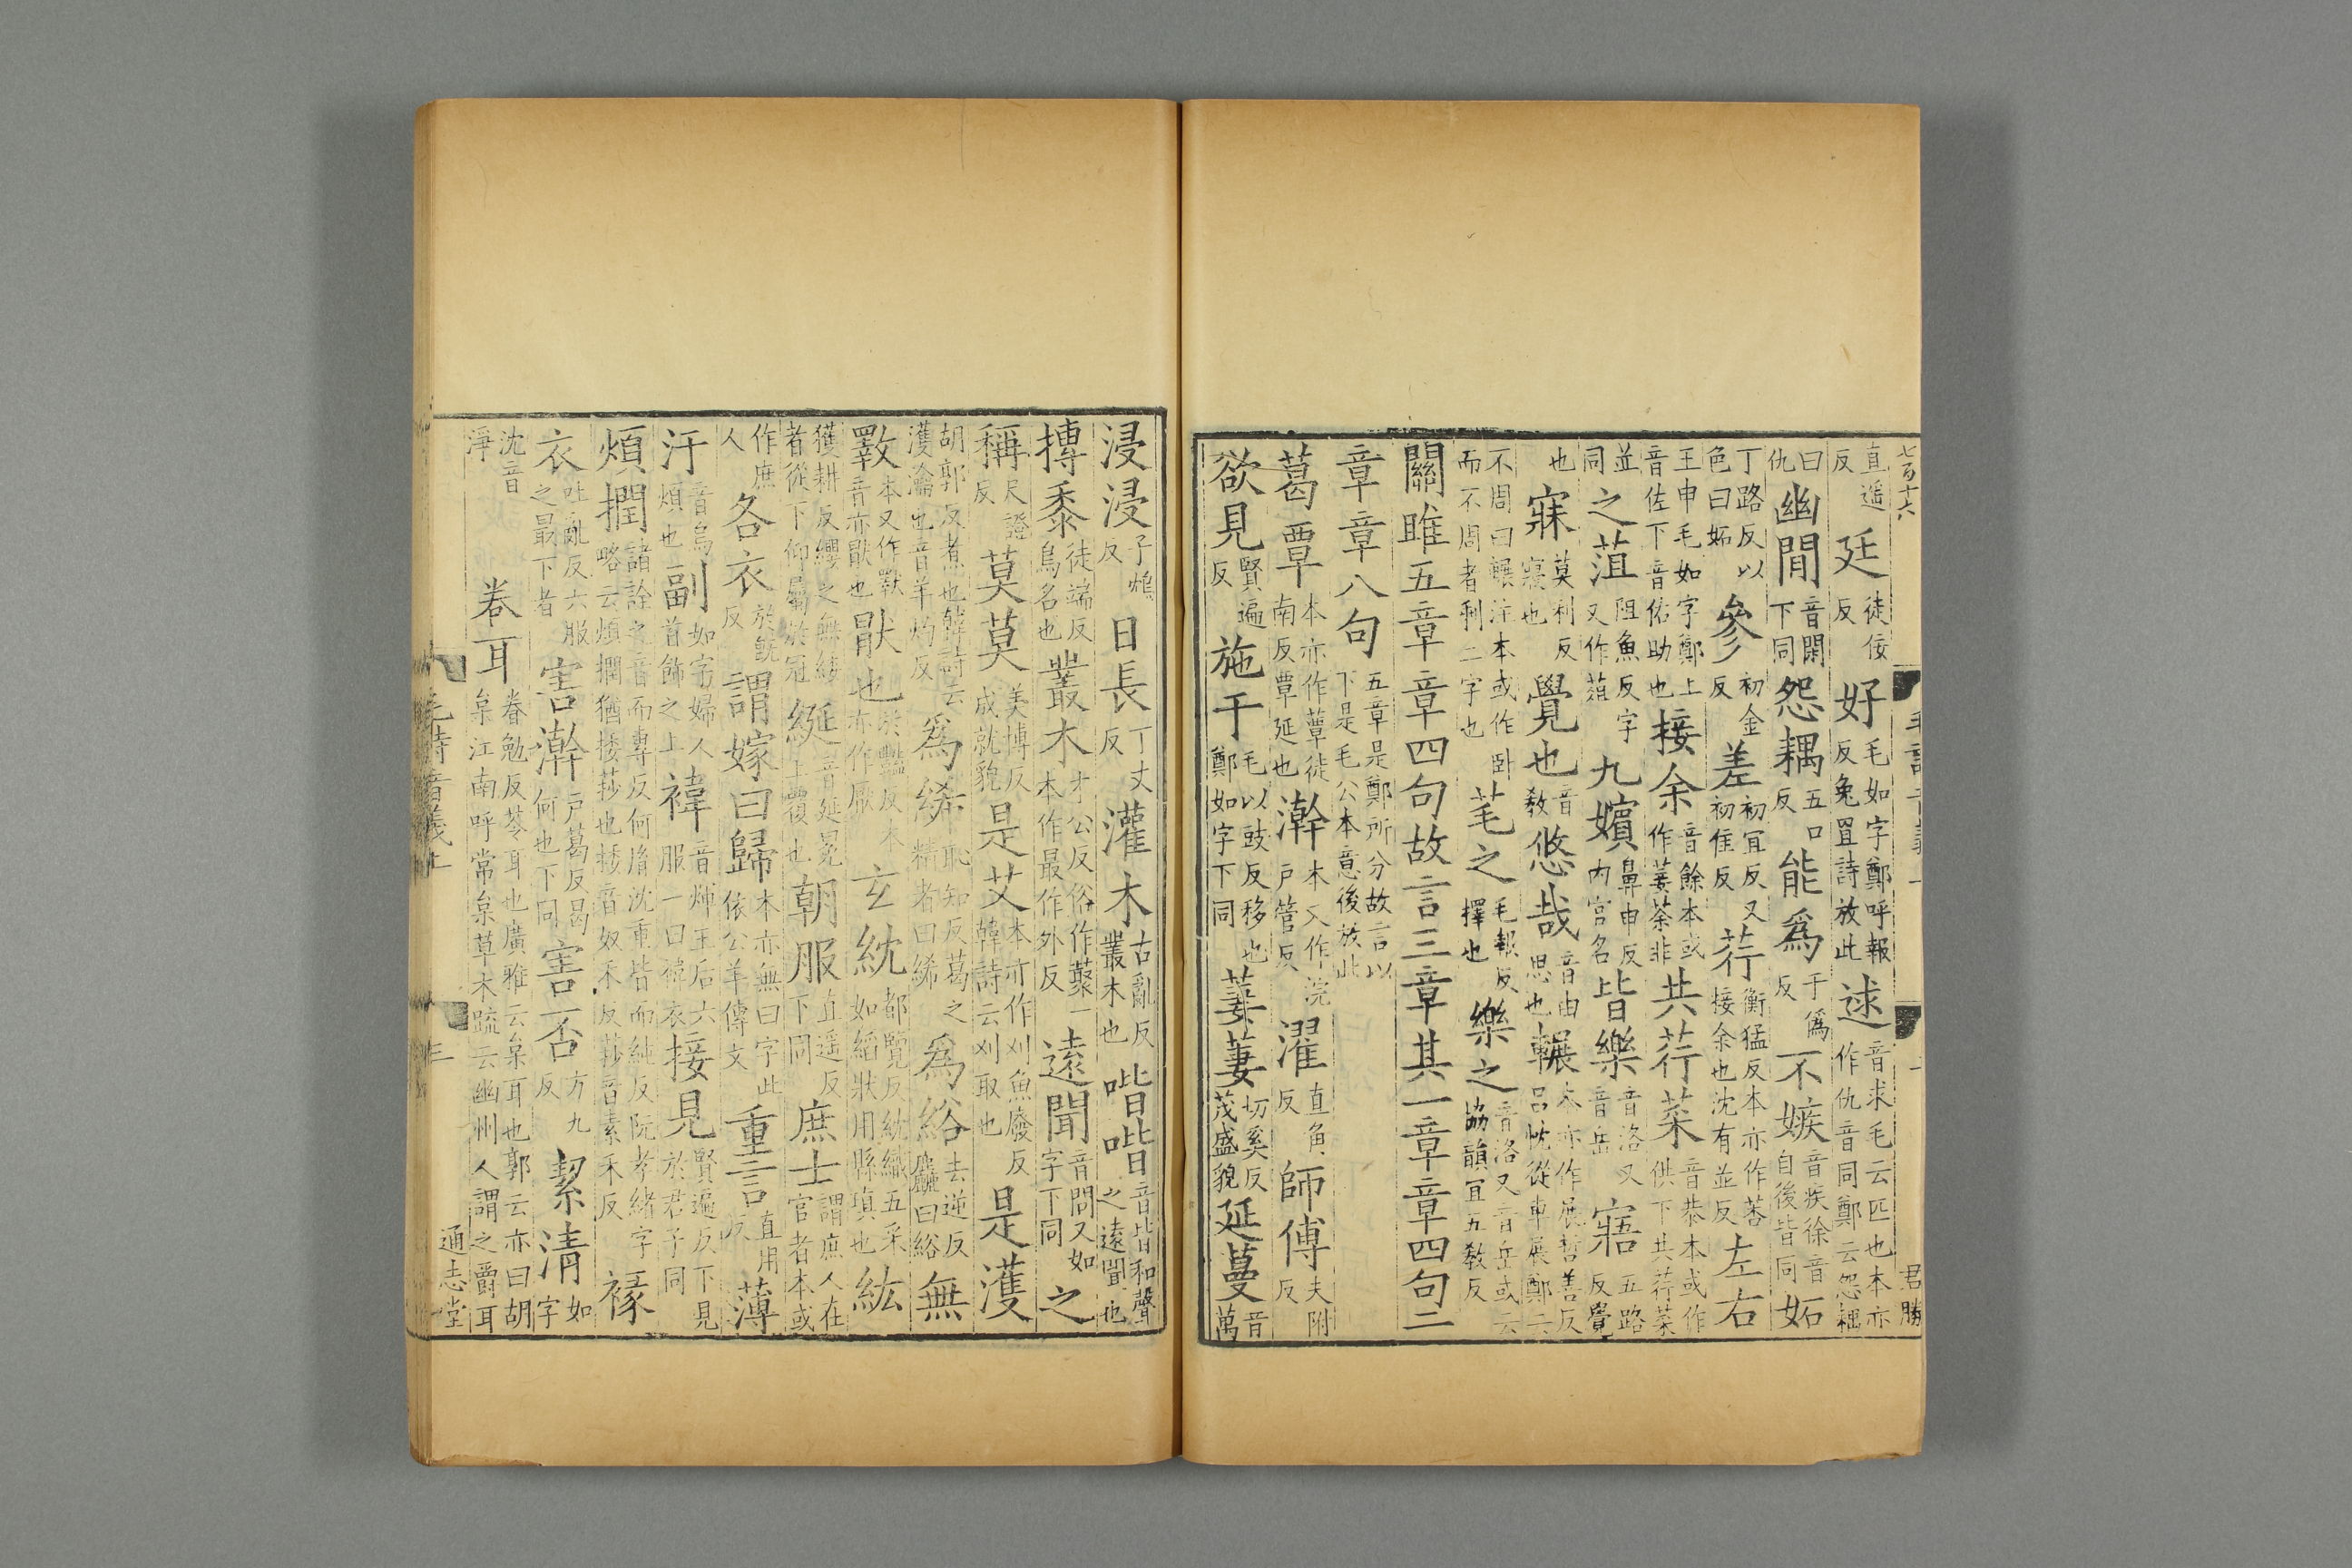 七百十六 毛詩音義上 二 君勝
直遥反廷徒佞反好毛如字鄭呼報反兔罝詩放此逑音求毛云匹也本亦作仇音同鄭云怨耦
曰仇幽閒音閑下同怨耦五口反能爲于僞反不嫉音疾徐音自後皆同妬
丁路反以色曰妬參初金反差初冝反又初隹反荇衡猛反本亦作莕接余也沈有並反左右
王申毛如字鄭上音佐下音佑助也接余音餘本或作萎荼非共荇菜音恭本或作供下共荇菜
並同之菹阻魚反字又作葅九嬪鼻申反内宫名皆樂音洛又音岳寤五路反覺
也寐莫利反寢也覺也音教悠哉音由思也輾本亦作展哲善反吕忱從車展鄭云
不周曰輾注本或作卧而不周者剩二字也芼之毛報反擇也樂之音洛又音岳或云協韻冝五教反
關雎五章章四句故言三章其一章章四句二
章章八句五章是鄭所分故言以下是毛公本意後放此
葛覃本亦作蕈徒南反覃延也澣本又作浣户管反濯直角反師傅夫附反
欲見賢遍反施于毛以豉反移也鄭如字下同萋萋切奚反茂盛貌延蔓音萬
浸浸子鴆反日長丁丈反灌木古亂反叢木也喈喈音皆和聲之遠聞也
摶黍徒端反鳥名也叢木才公反俗作藂一本作最作外反遠聞音問又如字下同之
稱尺證反莫莫美博反成就貌是艾本亦作刈魚廢反韓詩云刈取也是濩
胡郭反煮也韓詩云濩瀹也音羊灼反爲絺恥知反葛之精者曰絺爲綌去逆反麤曰綌無
斁本又作斁音亦猒也猒也於豔反本亦作厭玄紞都覽反紞織五采如縚狀用縣瑱也紘
獲耕反纓之無緌者從下仰屬於冠綖音延冕上覆也朝服直遥反下同庶士謂庶人在官者本或
作庶人各衣於旣反謂嫁曰歸本亦無曰字此依公羊傳文重言直用反薄
汙音烏煩也副如字婦人首飾之上褘音煇王后六服一曰褘衣接見賢遍反下見於君子同
煩撋諸詮之音而專反何胤沈重皆而純反阮孝緒字略云煩撋猶捼莎也捼音奴禾反莎音素禾反褖
衣吐亂反六服之最下者害澣户葛反曷何也下同害否方九反絜清如字
沈音淨卷耳眷勉反苓耳也廣雅云枲耳也郭云亦曰胡枲江南呼常枲草木疏云幽州人謂之爵耳
毛詩音義上 三 通志堂